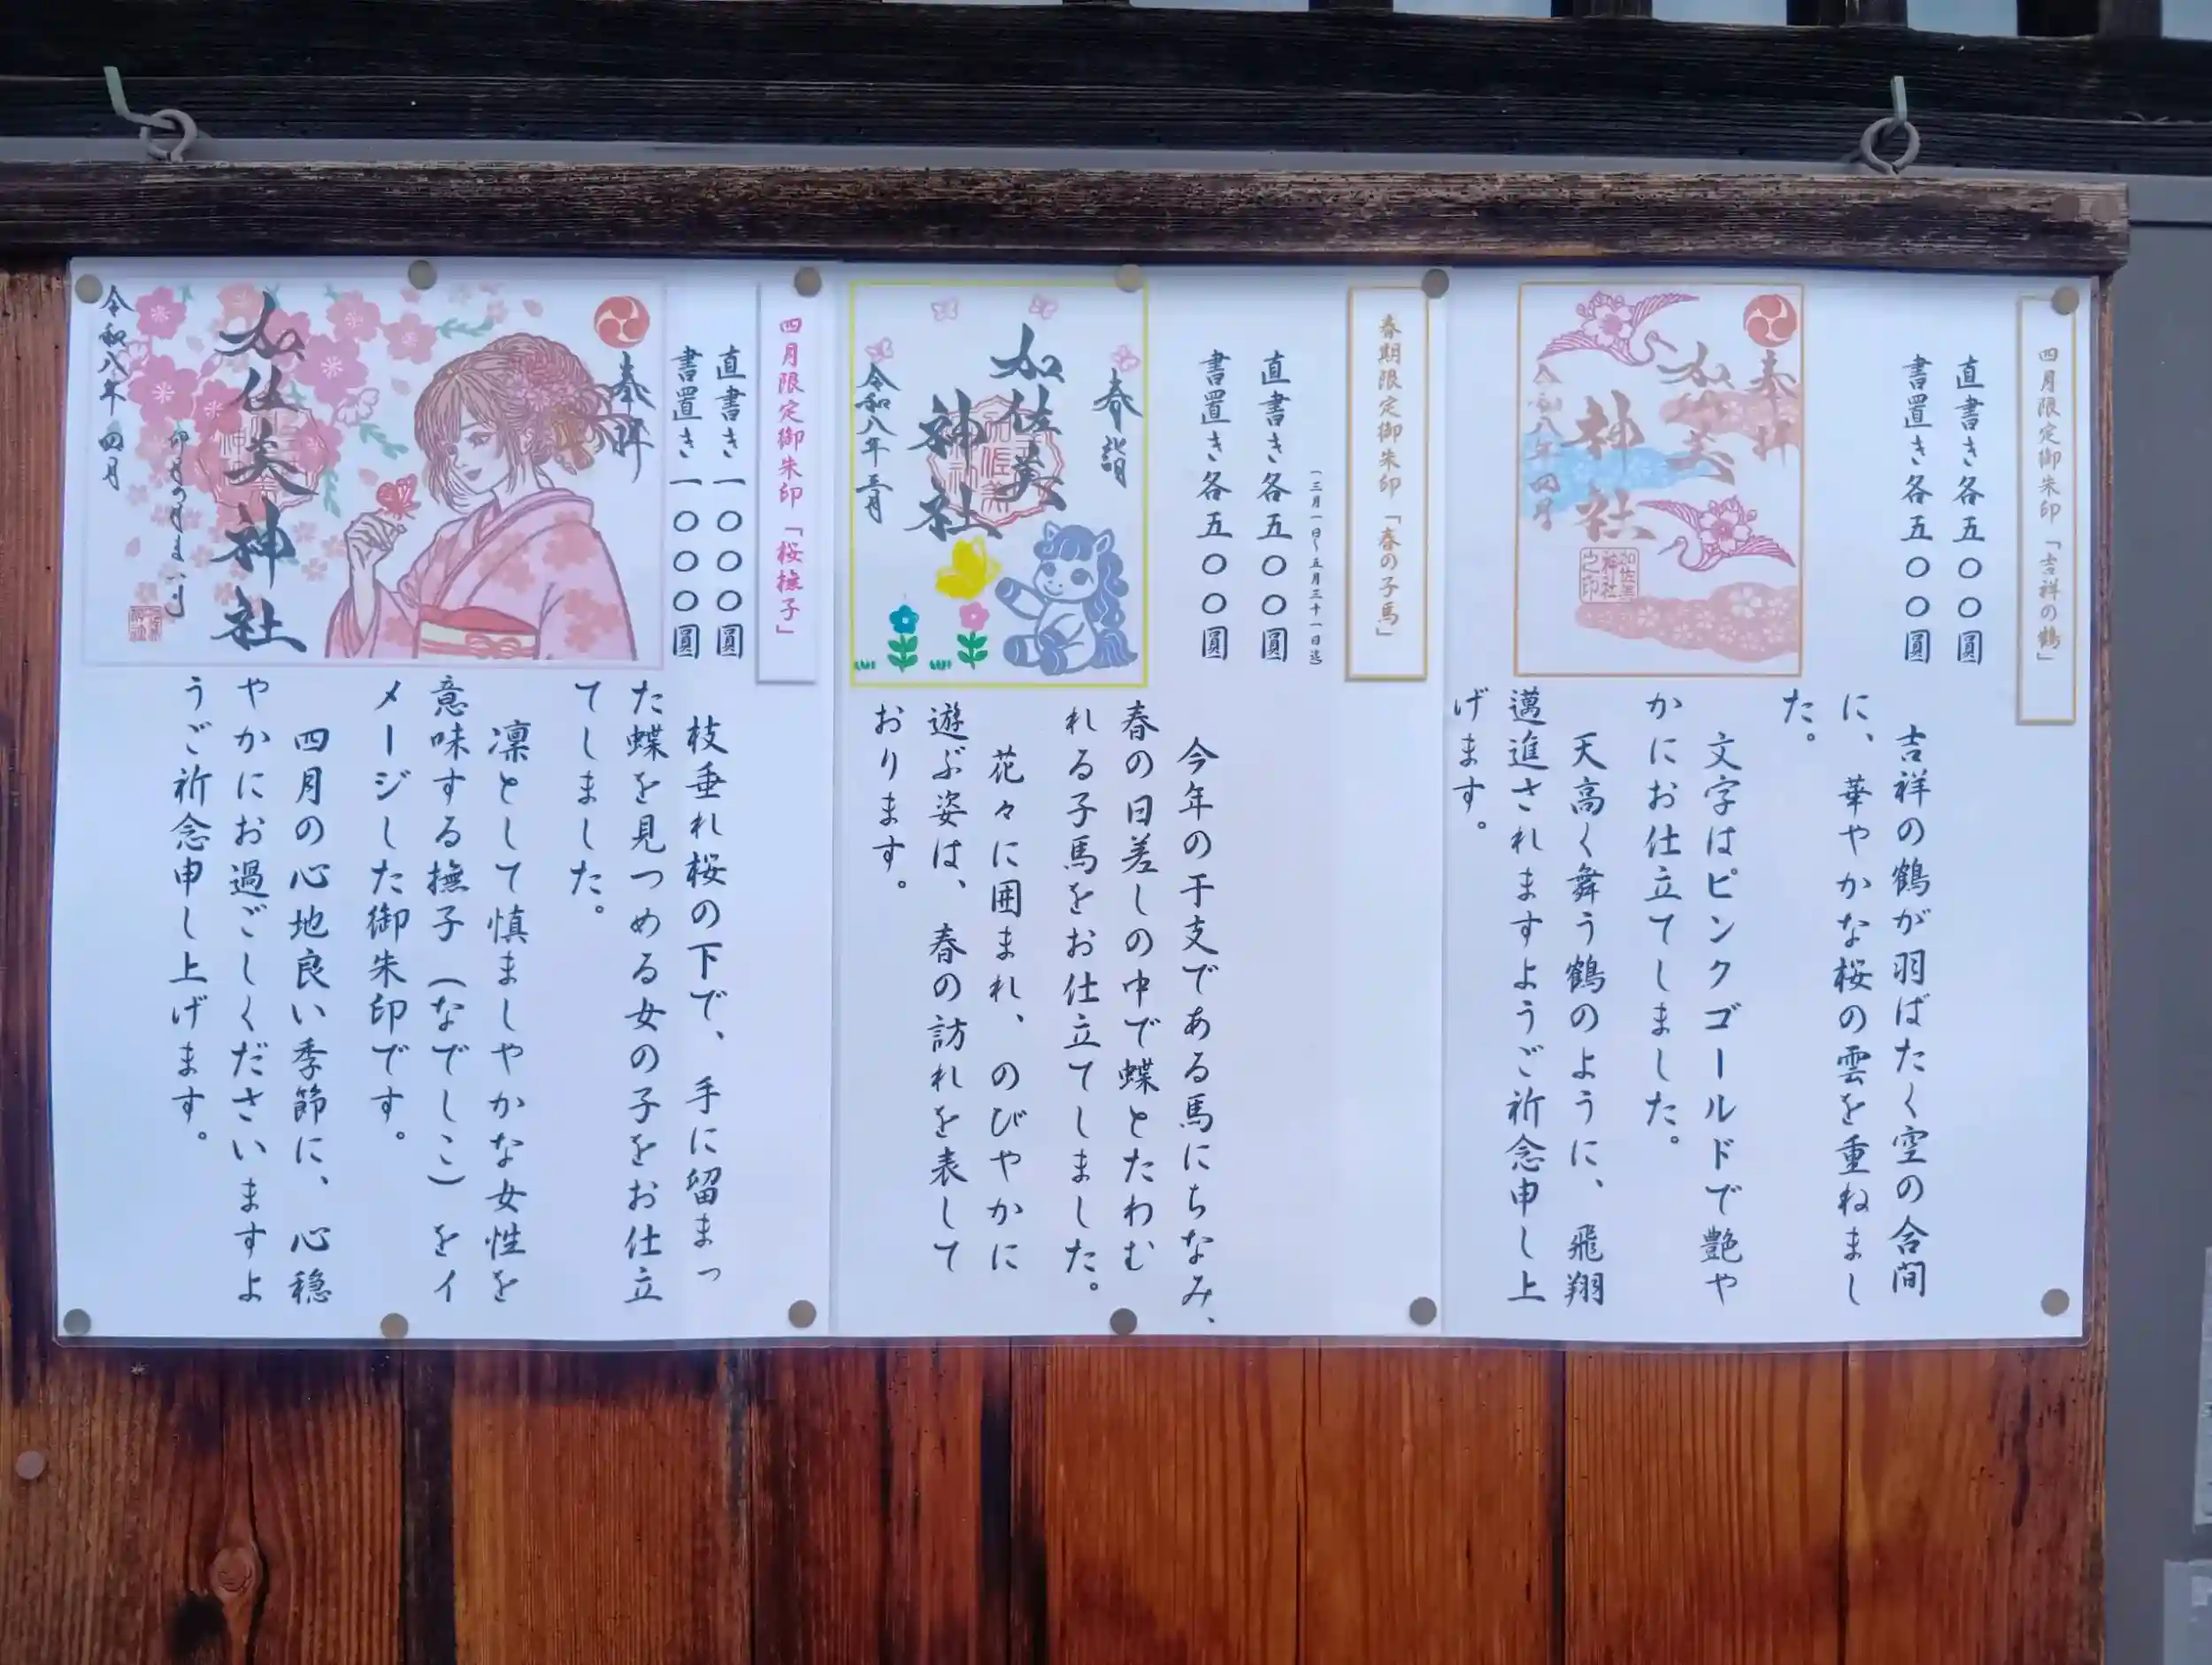 四月限定御朱印「吉祥の鶴」
直書き各五〇〇圓
書置き各五〇〇圓
奉拝
加佐美
神社
令和八年四月
加佐美
神社
之印
吉祥の鶴が羽ばたく空の合間
に、華やかな桜の雲を重ねまし
た。
文字はピンクゴールドで艶や
かにお仕立てしました。
天高く舞う鶴のように、飛翔
邁進されますようご祈念申し上
げます。
春期限定御朱印「春の子馬」
(三月一日~五月三十一日迄)
直書き各五〇〇圓
書置き各五〇〇圓
奉詣
加佐美
神社
令和八年三月
今年の干支である馬にちなみ、
春の日差しの中で蝶とたわむ
れる子馬をお仕立てしました。
花々に囲まれ、のびやかに
遊ぶ姿は、春の訪れを表して
おります。
四月限定御朱印「桜撫子」
直書き一〇〇〇圓
書置き一〇〇〇圓
奉拝
加佐美神社
令和八年四月
枝垂れ桜の下で、手に留まっ
た蝶を見つめる女の子をお仕立
てしました。
凛として慎ましやかな女性を
意味する撫子(なでしこ)をイ
メージした御朱印です。
四月の心地良い季節に、心穏
やかにお過ごしくださいますよ
うご祈念申し上げます。